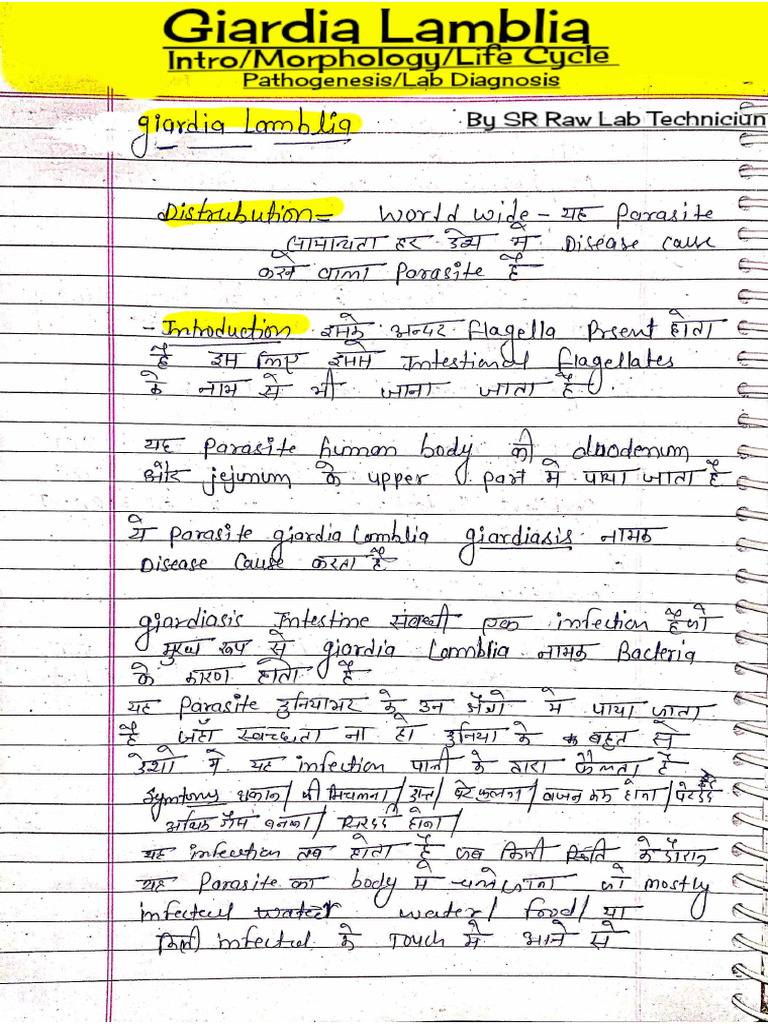 Giardia Lamblia
Intro/Morphology/Life Cycle
Pathogenesis/Lab Diagnosis
giardia Lamblia
By SR Raw Lab Techniciun
Distrubution = World wide - यह Parasite
सामान्यता हर देश में Disease cause
करने वाला Parasite है
- Introduction इसके अन्दर flagella Prsent होता
है इस लिए इसमे Intestional flagellates
के नाम से भी जाना जाता है
यह Parasite human body की duodenum
और jejunum के upper part मे पाया जाता है
ये Parasite giardia Lamblia giardiasis नामक
Disease Cause करता है
giardiasis Intestine संबन्धी एक infection है जो
मुख्य रूप से giardia Lamblia नामक Bacteria
के कारण होता है
यह Parasite दुनियाभर के उन क्षेत्रो मे पाया जाता
है जहाँ स्वच्छता ना हो दुनिया के बहुत से
देशो मे यह infection पानी के द्वारा फैलता है
Symtoms थकान / जी मिचलना / दस्त / पेट फुलना / वजन कम होना / पेट दर्द
अधिक गैस बनना / सिरदर्द होना /
यह infection तब होता है जब किसी स्थिति के दौरान
यह Parasite का body मे चले जाना जो mostly
infected water water / food / या
किसी infected के Touch मे आने से